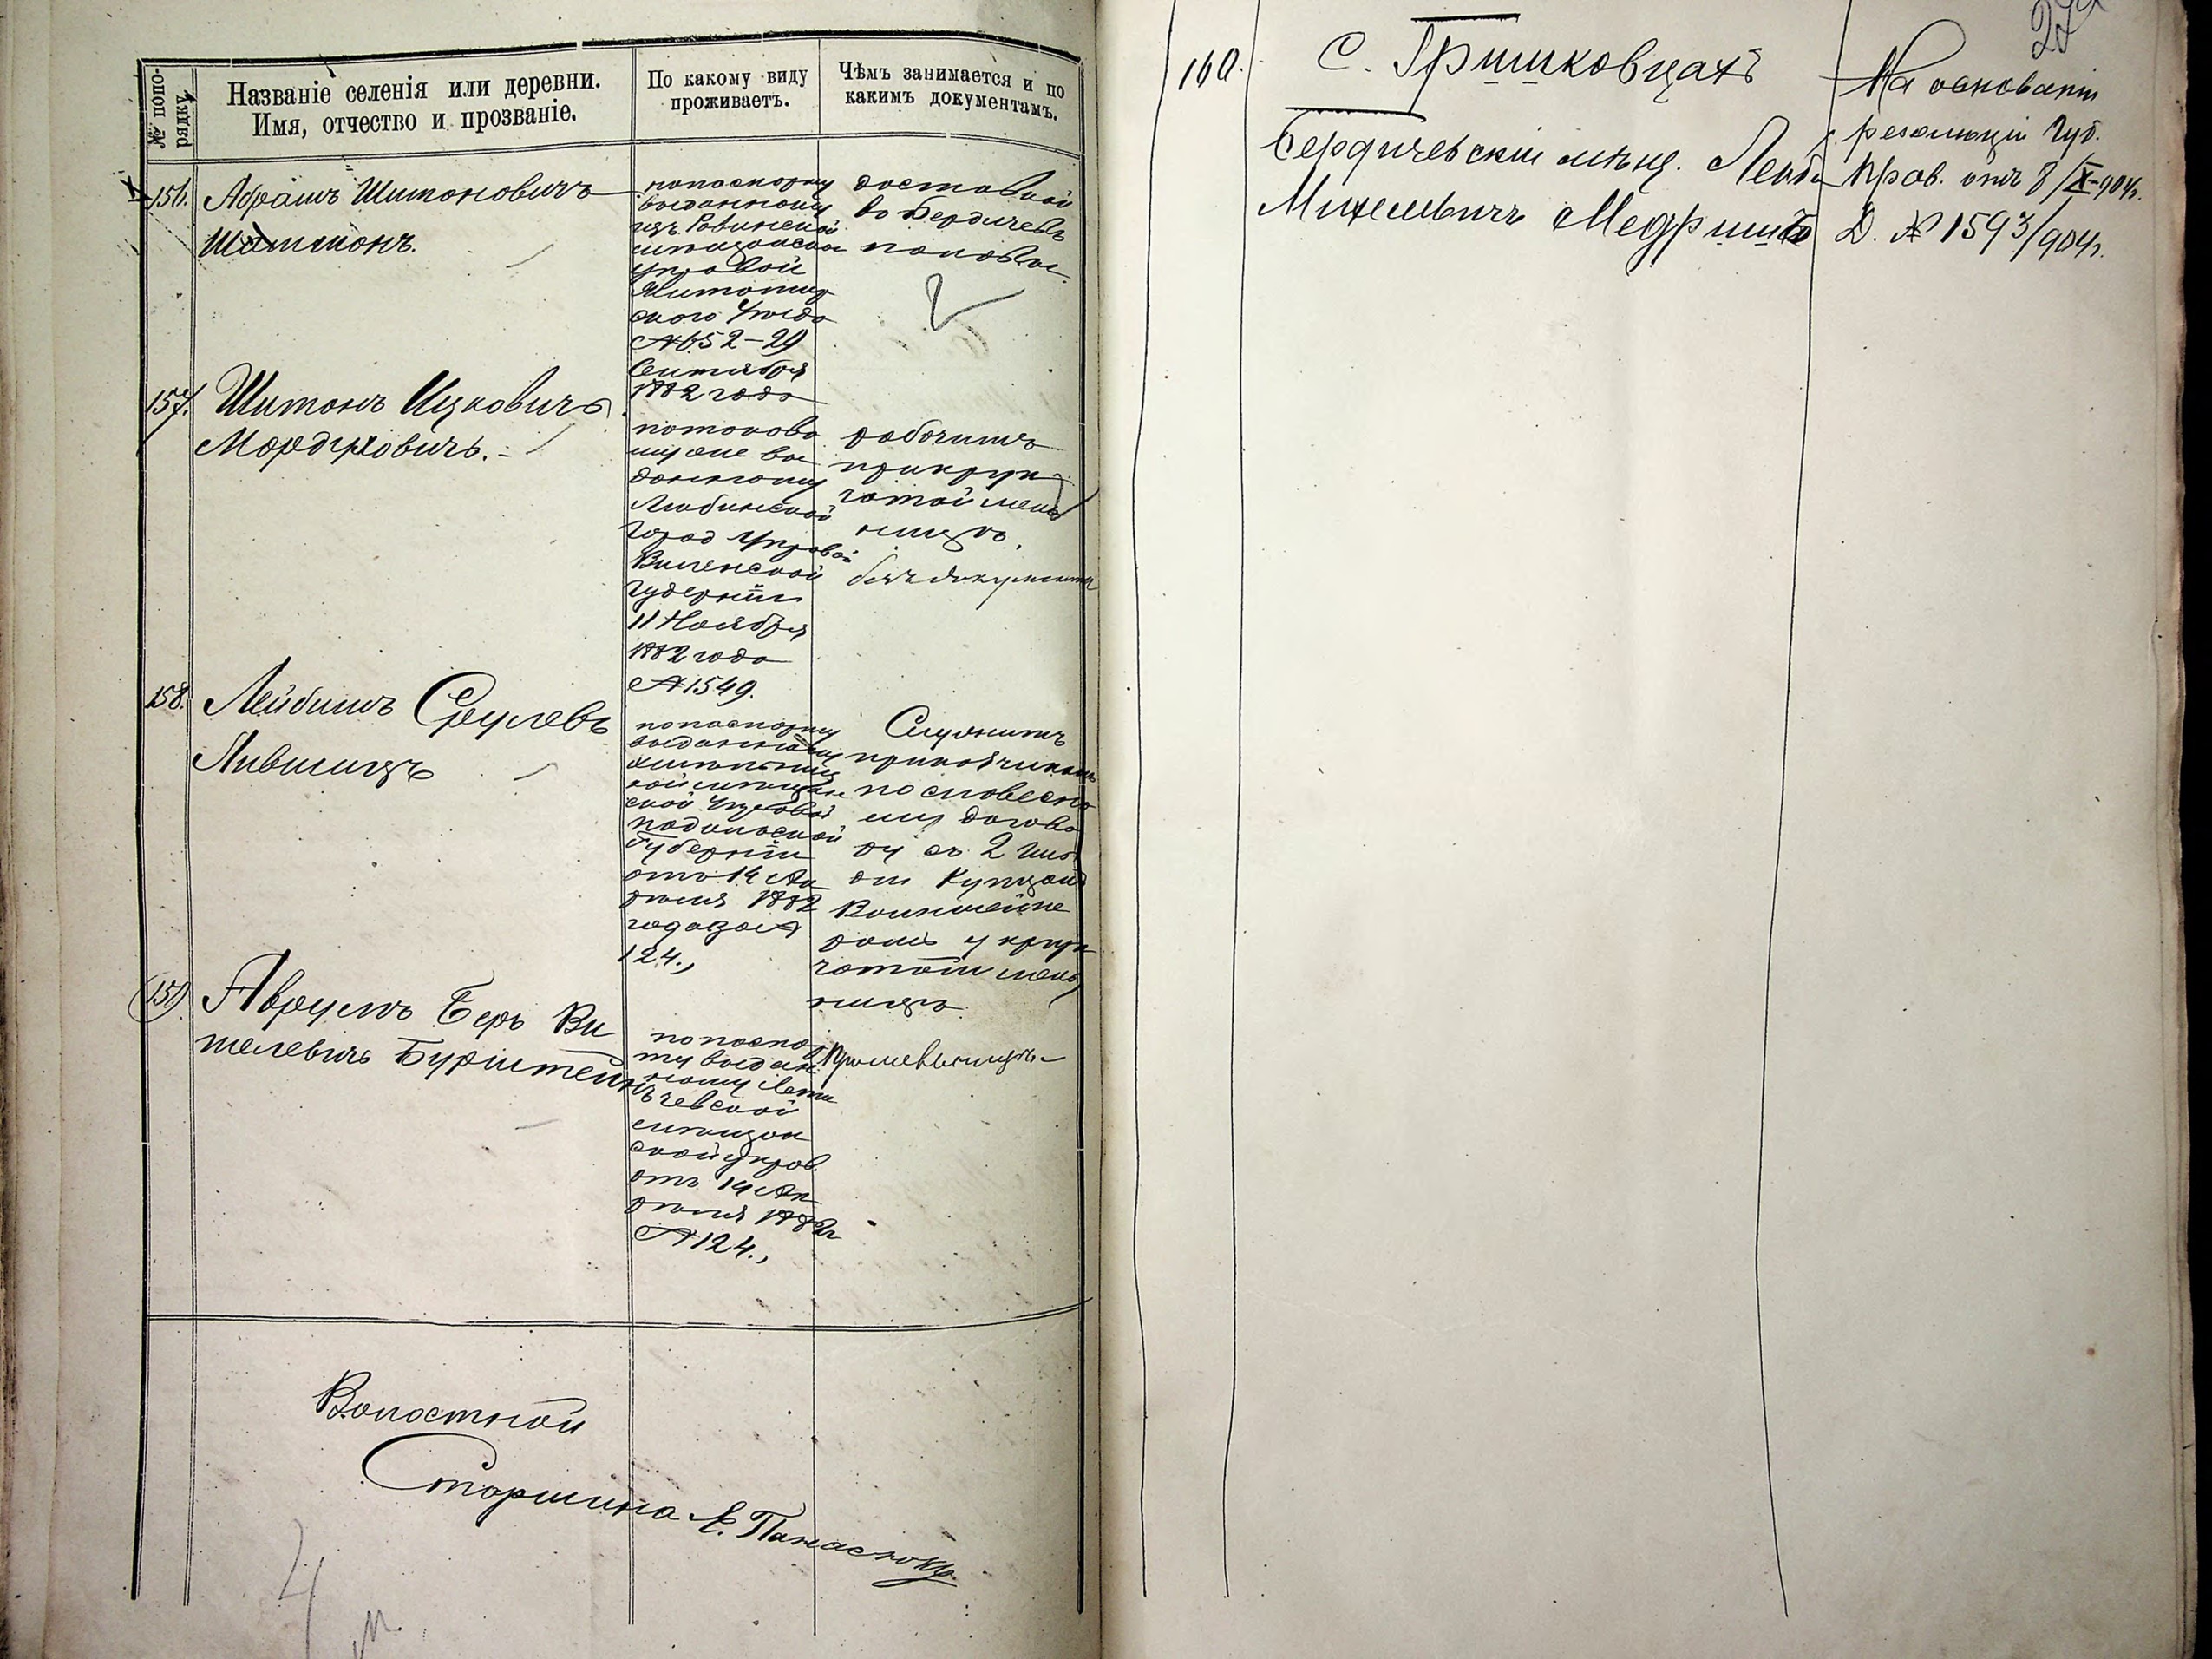 № попо-
рядку
Названіе селенія или деревни.
Имя, отчество и прозваніе.
По какому виду
проживаетъ.
Чѣмъ занимается и по
какимъ документамъ.
156.
Абрамъ Шимоновичъ
попаспорту
выданному
изъ Ровинской
мѣщанской
управой
Житомир
ского Уѣзда
№652-29
Сентября
1882 года
доставкой
во Бердичевъ
157.
Шимонъ Ицковичъ
Мордковичъ.
потаково
му же вы
данному
Любинской
Город Управой
Виленской
Губерніи
11 Ноября
1882 года
№1549.
рабочимъ
прикруп
чатой мель
ницѣ.
безъ документа
158.
Лейбишъ Срулевъ
Лившицъ
попаспорту
выданному
кой мѣщан
ской Управой
Подольской
Губерніи
отъ 14 Ап
рѣля 1882
года за №
124.,
Служитъ
прикащикомъ
по словесно
му догово
ру съ 2 Гиль
діи Купцомъ
ромъ у круп
чатой мель
ницѣ
159.
Аврумъ Беръ Ви
телевичъ Бурштейнъ
попаспор
ту выдан
ному Лети
чевской
мѣщан
ской управ.
отъ 14 Ап
рѣля 1882г
№124.,
Волостной
Старшина Е. Панасюкъ
4
м.
27
160.
С. Гришковцахъ
Бердичевскій мѣщ. Лейба
Михелевичъ Медришъ
На основаніи
резолюціи Губ.
Прав. отъ 8/X-904г.
Д. № 1593/904г.